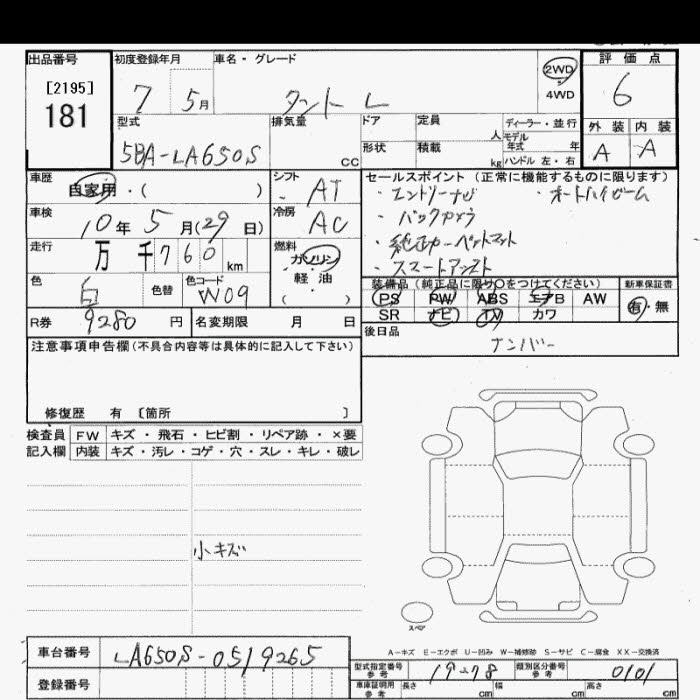 出品番号
[2195]
181
初度登録年月
7 5月
車名・グレード
タント L
2WD
4WD
評価点
6
外装 内装
A A
型式
5BA-LA650S
排気量
cc
ドア
定員
人
形状
積載
kg
ディーラー・並行
モデル
年式 年
ハンドル 左・右
車歴
自家用・( )
シフト
AT
車検
10年5月(29日)
冷房
AC
走行
万千760km
燃料
ガソリン
軽油
( )
色
白
色替
色コード
W09
R券
9280円
名変期限 月 日
セールスポイント(正常に機能するものに限ります)
・エントリーナビ ・オートハイビーム
・バックカメラ
・純正カーペットマット
・スマートアシスト
装備品(純正品に限り○をつけてください)
PS PW ABS エアB AW
SR ナビ TV カワ
新車保証書
有・無
後日品
ナンバー
注意事項申告欄(不具合内容等は具体的に記入して下さい)
修復歴 有 [箇所 ]
検査員
記入欄
FW キズ・飛石・ヒビ割・リペア跡・×要
内装 キズ・汚レ・コゲ・穴・スレ・キレ・破レ
小キズ
スペア
A-キズ E-エクボ U-凹み W-補修跡 S-サビ C-腐食 XX-交換済
車台番号
LA650S-0519265
登録番号
型式指定番号
参考
19278
類別区分番号
参考
0101
車庫証明用
参考
長さ cm
幅 cm
高さ cm